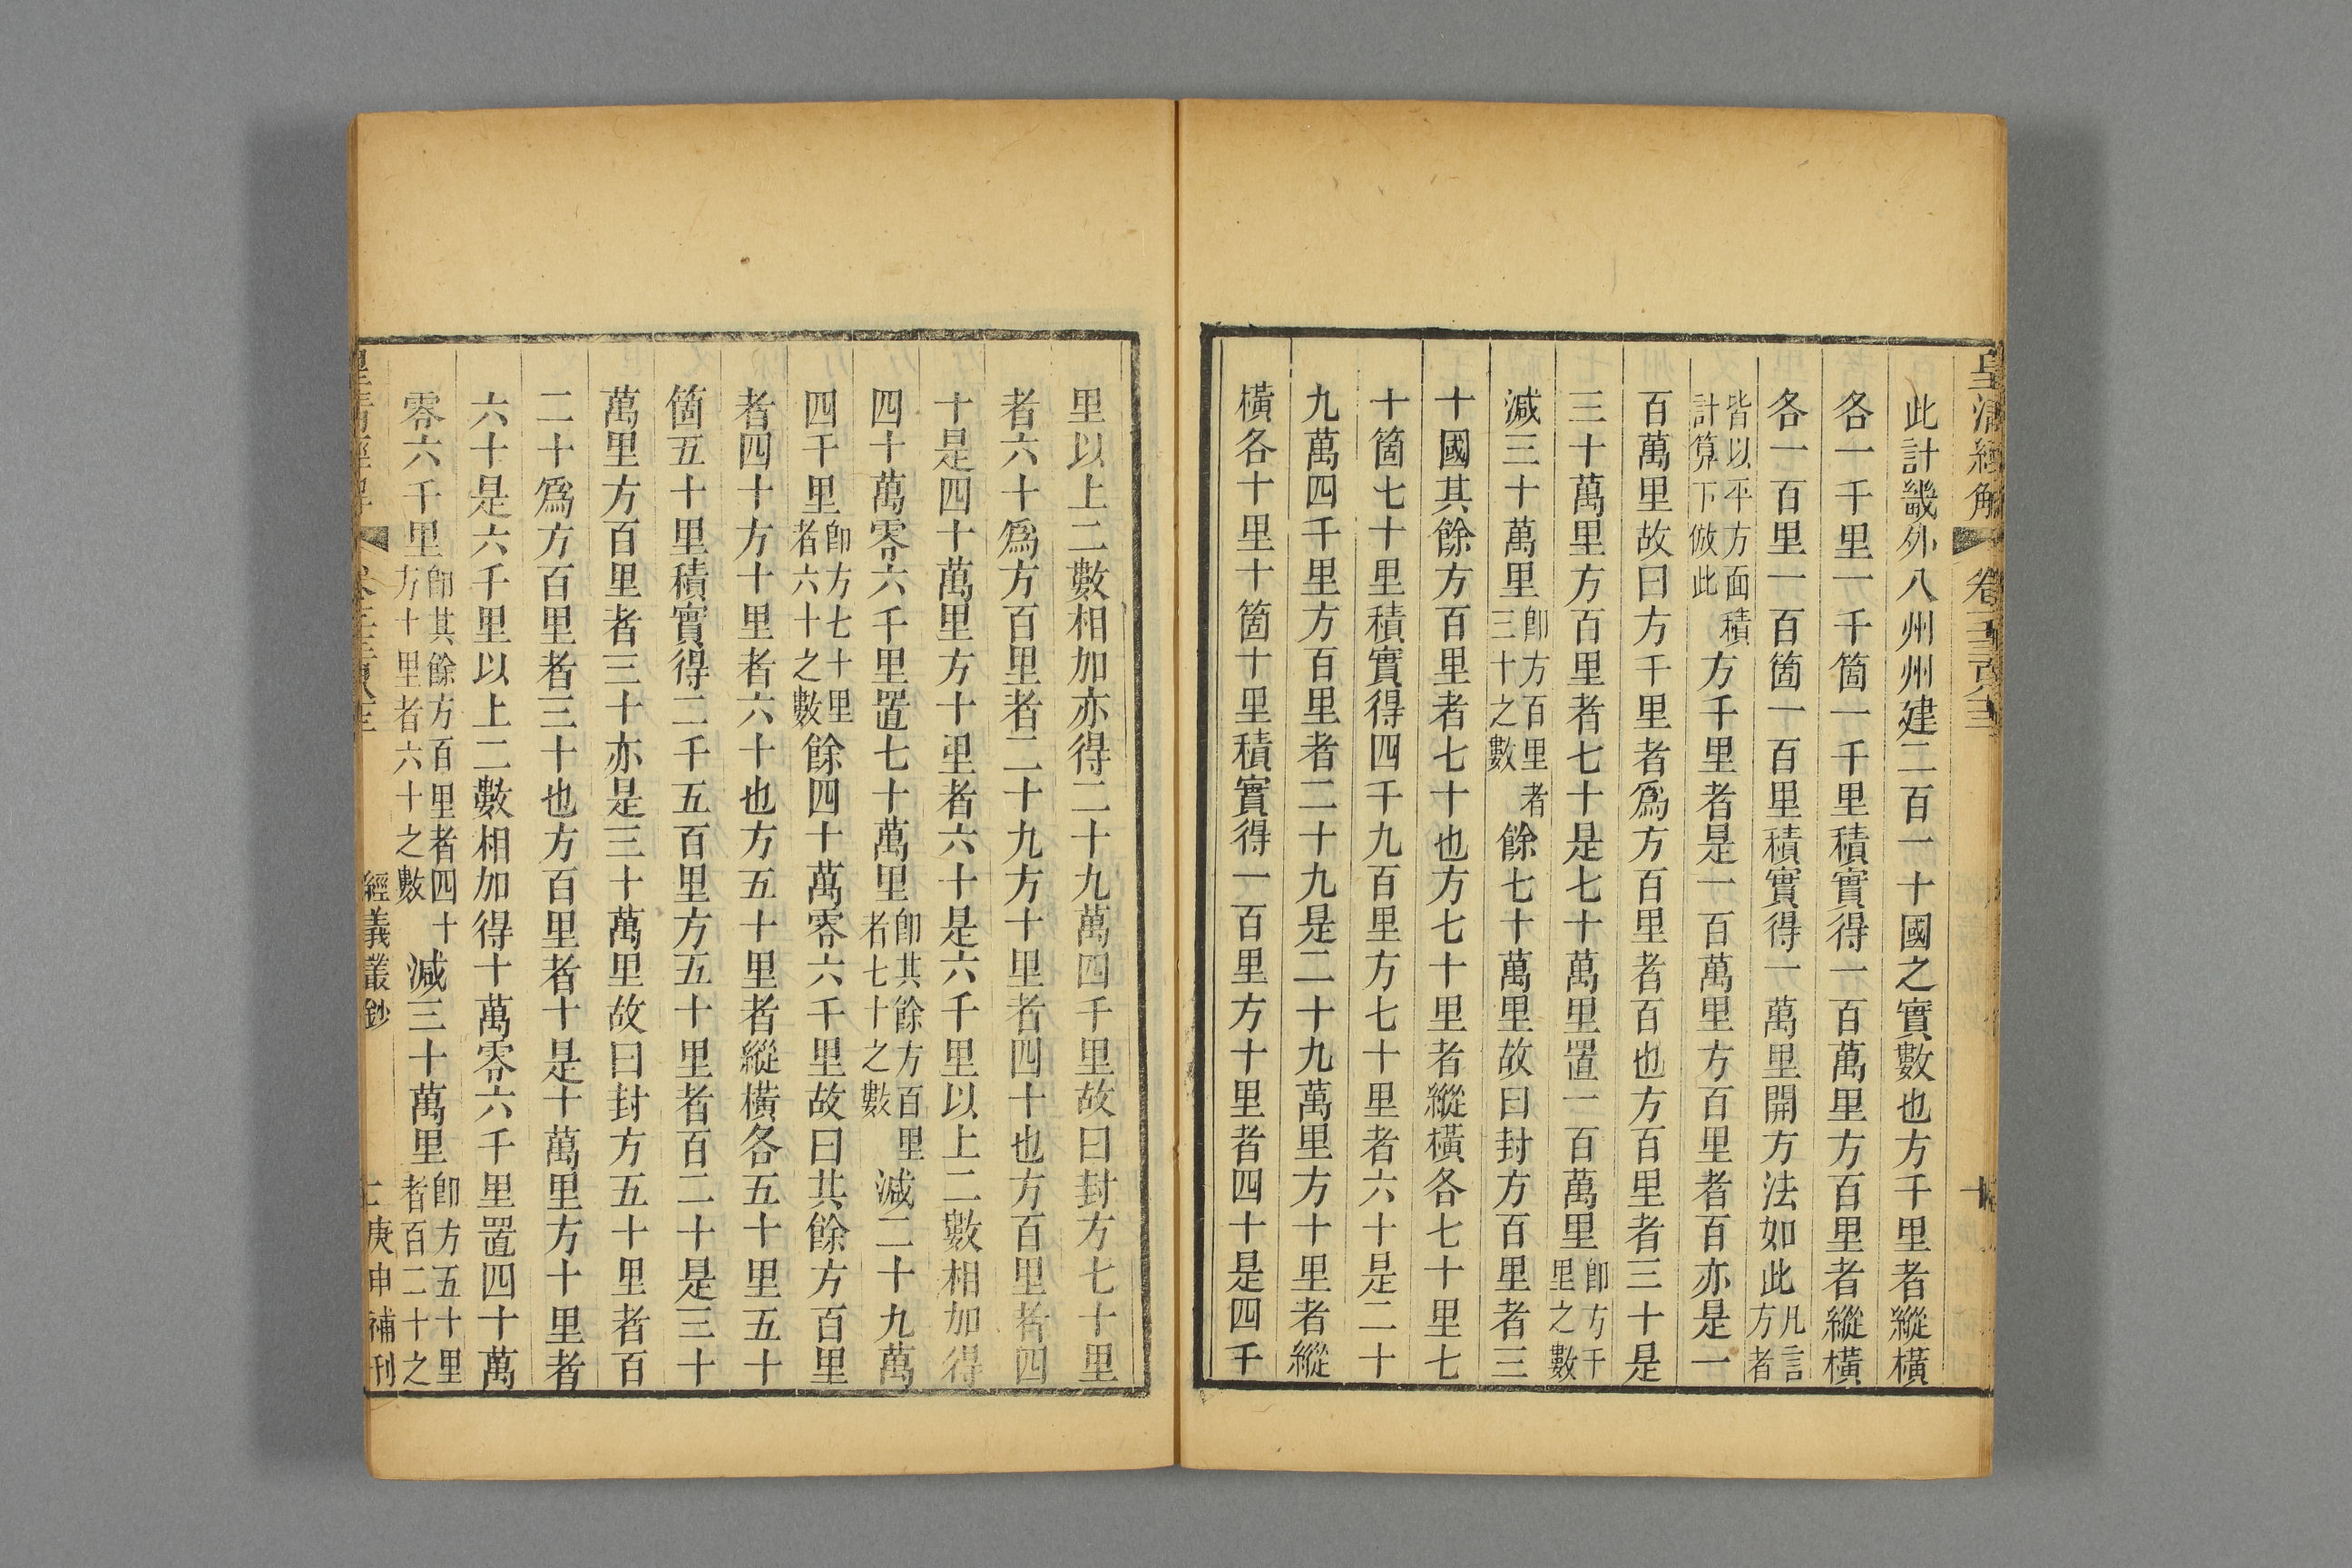 皇清經解
卷
此計畿外八州州建二百一十國之實數也方千里者縱橫
各一千里一千箇一千里積實得一百萬里方百里者縱橫
各一百里一百箇一百里積實得一萬里開方法如此凡言方者
皆以平方面積計算下倣此方千里者是一百萬里方百里者百亦是一
百萬里故曰方千里者爲方百里者百也方百里者三十是
三十萬里方百里者七十是七十萬里置一百萬里卽方千里之數
減三十萬里卽方百里者三十之數餘七十萬里故曰封方百里者三
十國其餘方百里者七十也方七十里者縱橫各七十里七
十箇七十里積實得四千九百里方七十里者六十是二十
九萬四千里方百里者二十九是二十九萬里方十里者縱
橫各十里十箇十里積實得一百里方十里者四十是四千
里以上二數相加亦得二十九萬四千里故曰封方七十里
者六十爲方百里者二十九方十里者四十也方百里者四
十是四十萬里方十里者六十是六千里以上二數相加得
四十萬零六千里置七十萬里卽其餘方百里者七十之數減二十九萬
四千里卽方七十里者六十之數餘四十萬零六千里故曰其餘方百里
者四十方十里者六十也方五十里者縱橫各五十里五十
箇五十里積實得二千五百里方五十里者百二十是三十
萬里方百里者三十亦是三十萬里故曰封方五十里者百
二十爲方百里者三十也方百里者十是十萬里方十里者
六十是六千里以上二數相加得十萬零六千里置四十萬
零六千里卽其餘方百里者四十方十里者六十之數減三十萬里卽方五十里者百二十之
皇清經解
經義叢鈔
庚申補刊